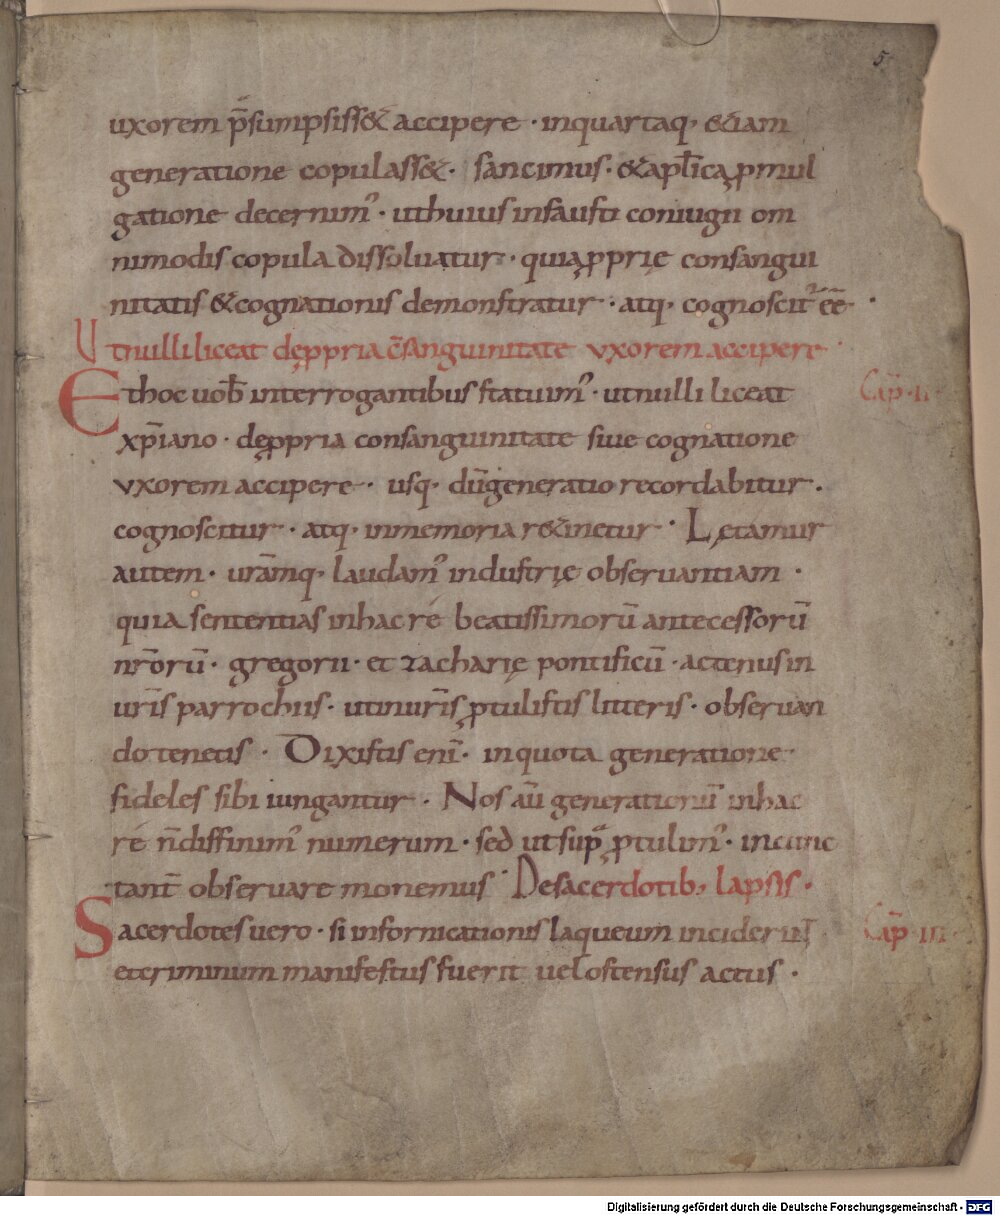 5
uxorem p̄sumpsiss& accipere · inquartaq; &iam
generatione copulass& · sancimus · &apl̄ica ꝓmul
gatione decernimꝰ · uthuius infausti coniugii om
nimodis copula dissoluatur · quia ꝓprię consangui
nitatis &cognationis demonstratur · atq; cognoscit᷑ ēē ·
Ut nulli liceat de ꝓpria c̄sanguinitate uxorem accipere ·
Ethoc uob̄ interrogantibus statuimꝰ · utnulli liceat Cap̄ · ii ·
xp̄iano · de ꝓpria consanguinitate siue cognatione
uxorem accipere · usq; dū generatio recordabitur ·
cognoscitur · atq; inmemoria r&inetur · Lętamur
autem · urāmq; laudamꝰ industrię obseruantiam ·
quia sententiās inhac ré beatissimorū antecessorū
nr̄orū · gregorii · et zacharię pontificū · actenus in
ur̄is parrochiis · utinur̄is ꝓtulistis litteris · obseruan
do tenetis · Dixistis enī · inquota generatione
fideles sibi iungantur · Nos aū generationū inhac
ré n̄ diffinimꝰ numerum · sed ut sup͛ ꝓtulimꝰ · incunc
tant᷑ obseruare monemus · De sacerdotib; lapsis ·
Sacerdotes uero · si infornicationis laqueum inciderint Cap̄ · iii ·
etcriminum manifestus fuerit uel ostensus actus ·
Digitalisierung gefördert durch die Deutsche Forschungsgemeinschaft - DFG